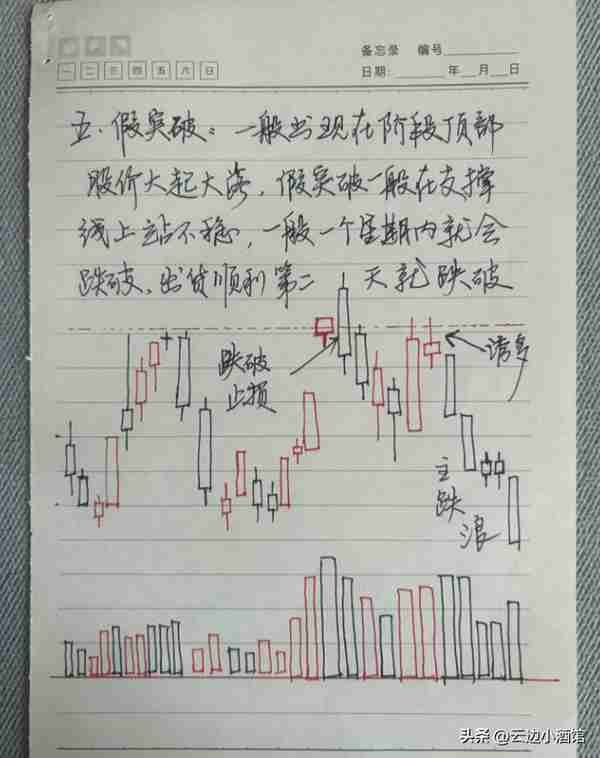 备忘录 编号
一 二 三 四 五 六 日
日期: 年 月 日
五、假突破:一般出现在阶段顶部
股价大起大落,假突破一般在支撑
线上站不稳,一般一个星期内就会
跌破、出货顺利第二 天就跌破
跌破
止损
诱多
主
跌
浪
头条 @云边小酒馆